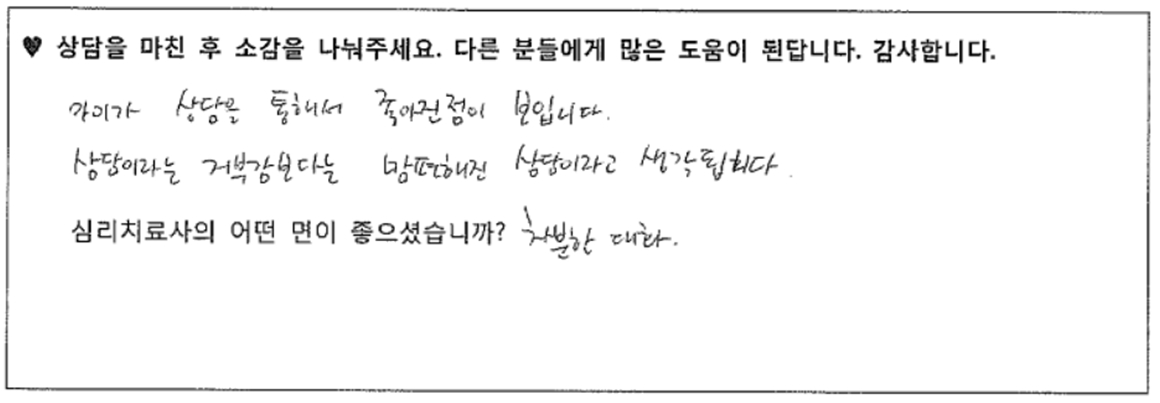 ♥ 상담을 마친 후 소감을 나눠주세요. 다른 분들에게 많은 도움이 된답니다. 감사합니다.
상담을 통해서 좋아진점이 보입니다.
상담이라는 거부감보다는 맘편해진 상담이라고 생각됩니다.
심리치료사의 어떤 면이 좋으셨습니까? 차분한 대화.